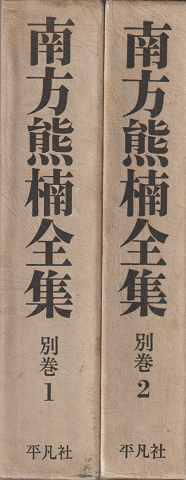 南方熊楠全集
別巻1
平凡社
南方熊楠全集
別巻2
平凡社